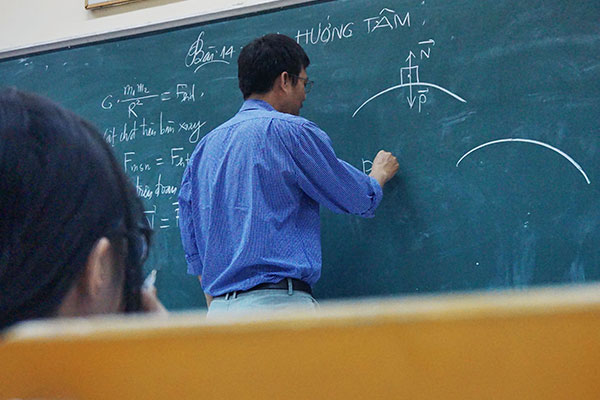 Bài 14 HƯỚNG TÂM
G. m₁m₂/R² = Fhd.
Vật đặt trên bàn xoay
Fmsn = Fht
N
P
N =
P